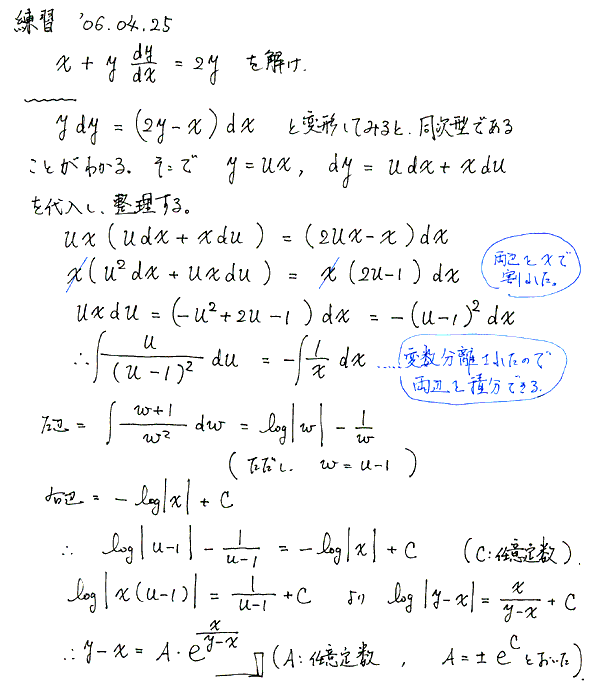 練習 '06.04.25
x + y dy/dx = 2y を解け.
y dy = (2y-x) dx と変形してみると、同次型である
ことがわかる。そこで y = ux, dy = u dx + x du
を代入し、整理する。
ux (u dx + x du) = (2ux - x) dx
x(u² dx + ux du) = x (2u-1) dx
両辺をxで
割れた。
ux du = (-u² + 2u - 1) dx = -(u-1)² dx
∴ ∫ u/(u-1)² du = -∫ 1/x dx ……変数分離されたので
両辺を積分できる.
左辺 = ∫ (w+1)/w² dw = log|w| - 1/w
(ただし w = u-1)
右辺 = -log|x| + C
∴ log|u-1| - 1/(u-1) = -log|x| + C (C:任意定数).
log|x(u-1)| = 1/(u-1) + C より log|y-x| = x/(y-x) + C
∴ y-x = A・e^(x/(y-x)) (A:任意定数, A = ±e^C とおいた)